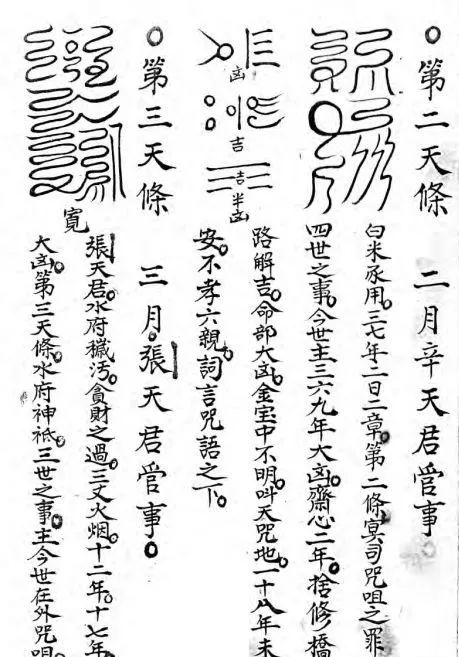 ○第二天條 二月辛天君管事○
白米承用。三七年二日二章。第二條冥司咒咀之罪
四世之事。今世主三六九年大凶。齋心二年。捨修橋
路解吉。命部大凶。金宝中不明。叫天咒地。一十八年未
安。不孝六親。詞言咒語之下。
凶
吉
吉半凶
○第三天條 三月。張天君管事○
寬
張天君。水府穢汚。貪財之過。三丈火烟。十二年。十七年
大凶。第三天條。水府神祇。三世之事。主今世在外咒咀。